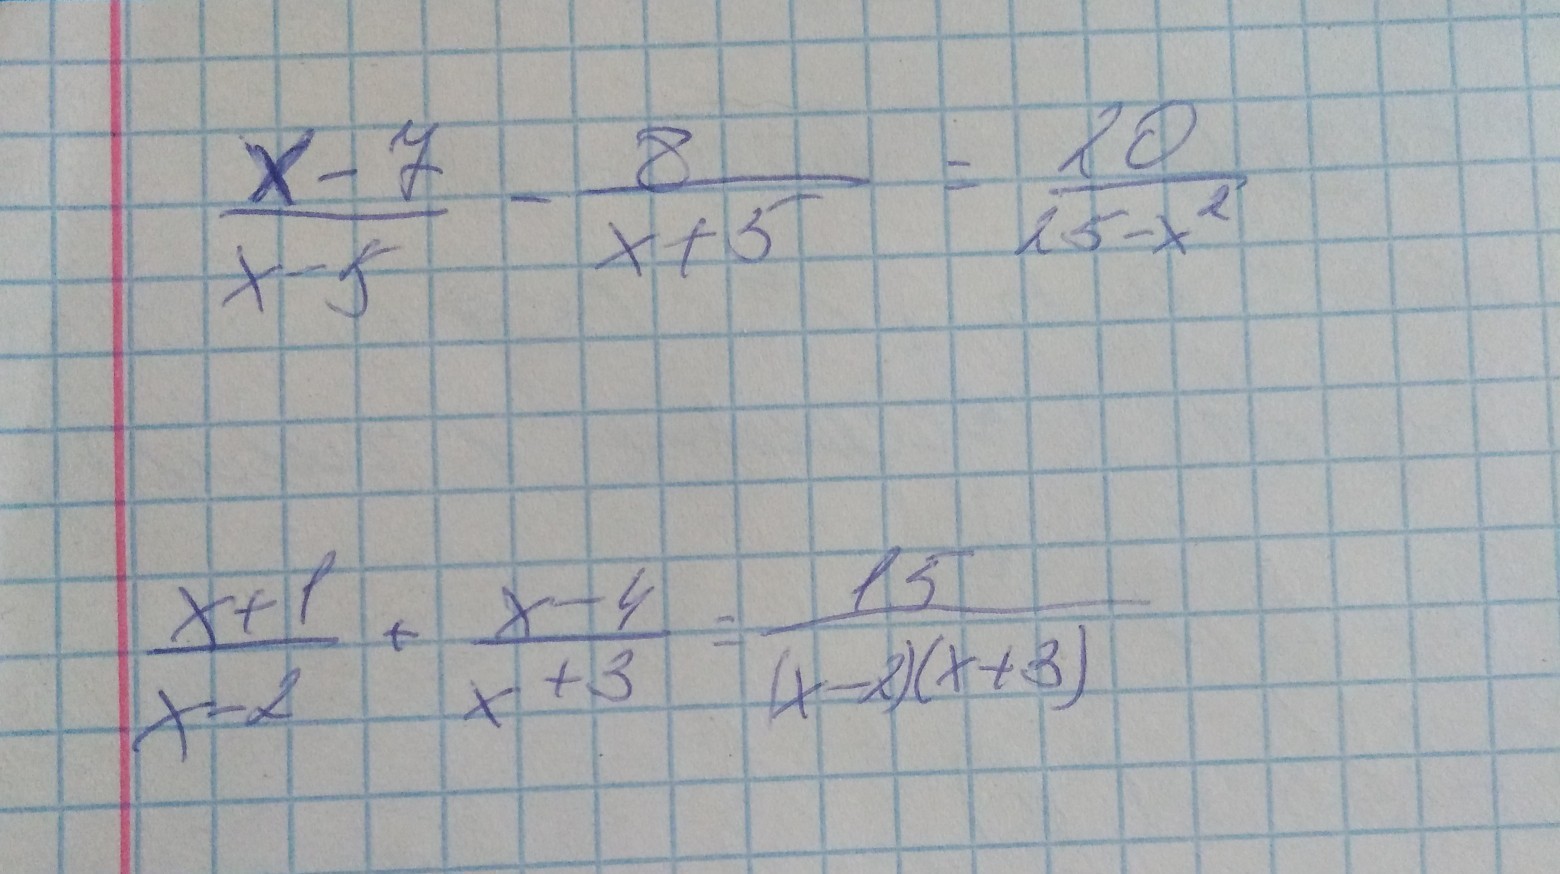 (x-7)/(x-5) - 8/(x+5) = 20/(25-x²)
(x+1)/(x-2) + (x-4)/(x+3) = 15/((x-2)(x+3))